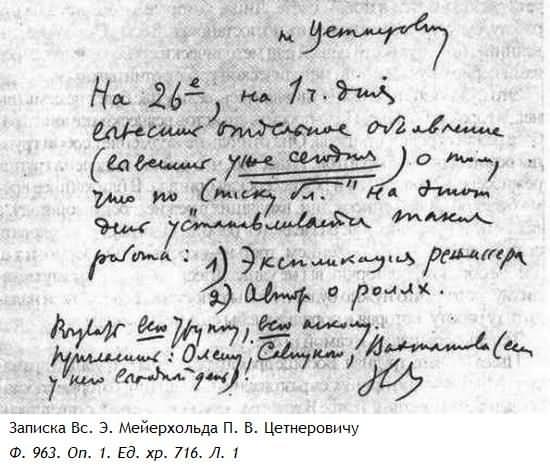 т. Цетнерович
На 26е, на 1 ч. дня
вывесить отдельное объявление
(вывесить уже сегодня) о том,
что по „Списку бл.“ на этот
день устанавливается такая
работа: 1) Экспликация режиссера
2) Автор о ролях.
Вызвать всю труппу, всю школу.
Пригласить: Олешу, Савицкого, Вахтангова (если
у него свободный день)
Записка Вс. Э. Мейерхольда П. В. Цетнеровичу
Ф. 963. Оп. 1. Ед. хр. 716. Л. 1